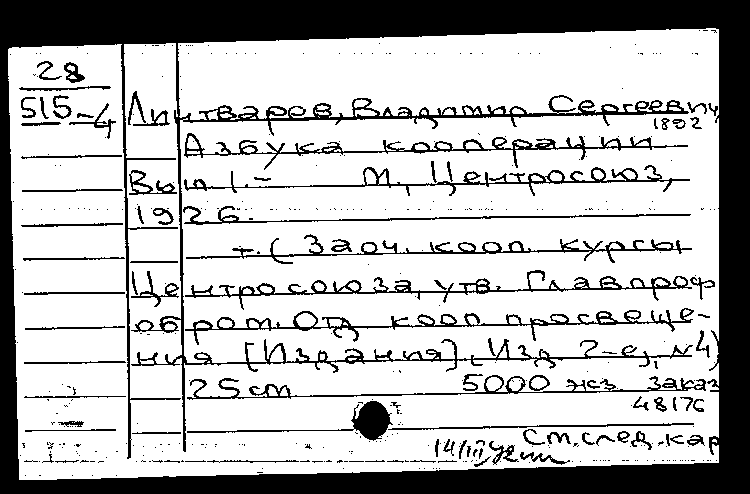 28
515-4 Линтваров, Владимир Сергеевич
1892
Азбука кооперации
Вып 1.- М., Центросоюз,
1926.
т. (Заоч. кооп. курсы
Центросоюза, утв. Главпроф
обром. Отд кооп. просвеще-
ния [Издания]. Изд 2-е, №4)
25 см 5000 экз. заказ
48176
См. след. кар
14/III